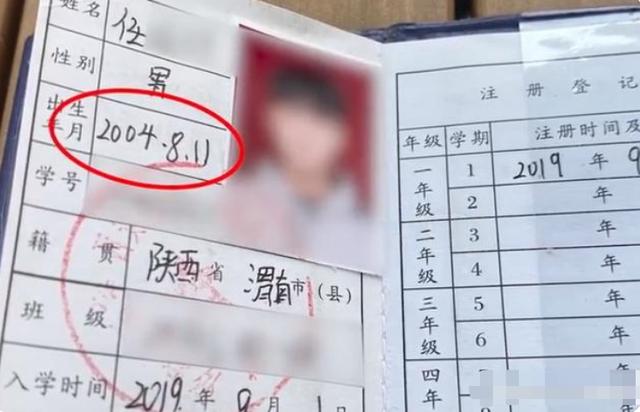 姓名 任
性别 男
出生年月 2004.8.11
学号
籍贯 陕西省 渭南市(县)
班级
入学时间 2019年9月1日
注册登记
年级 学期 注册时间及
一年级 1 2019年9
2 年
二年级 3 年
4 年
三年级 5 年
6 年
四年